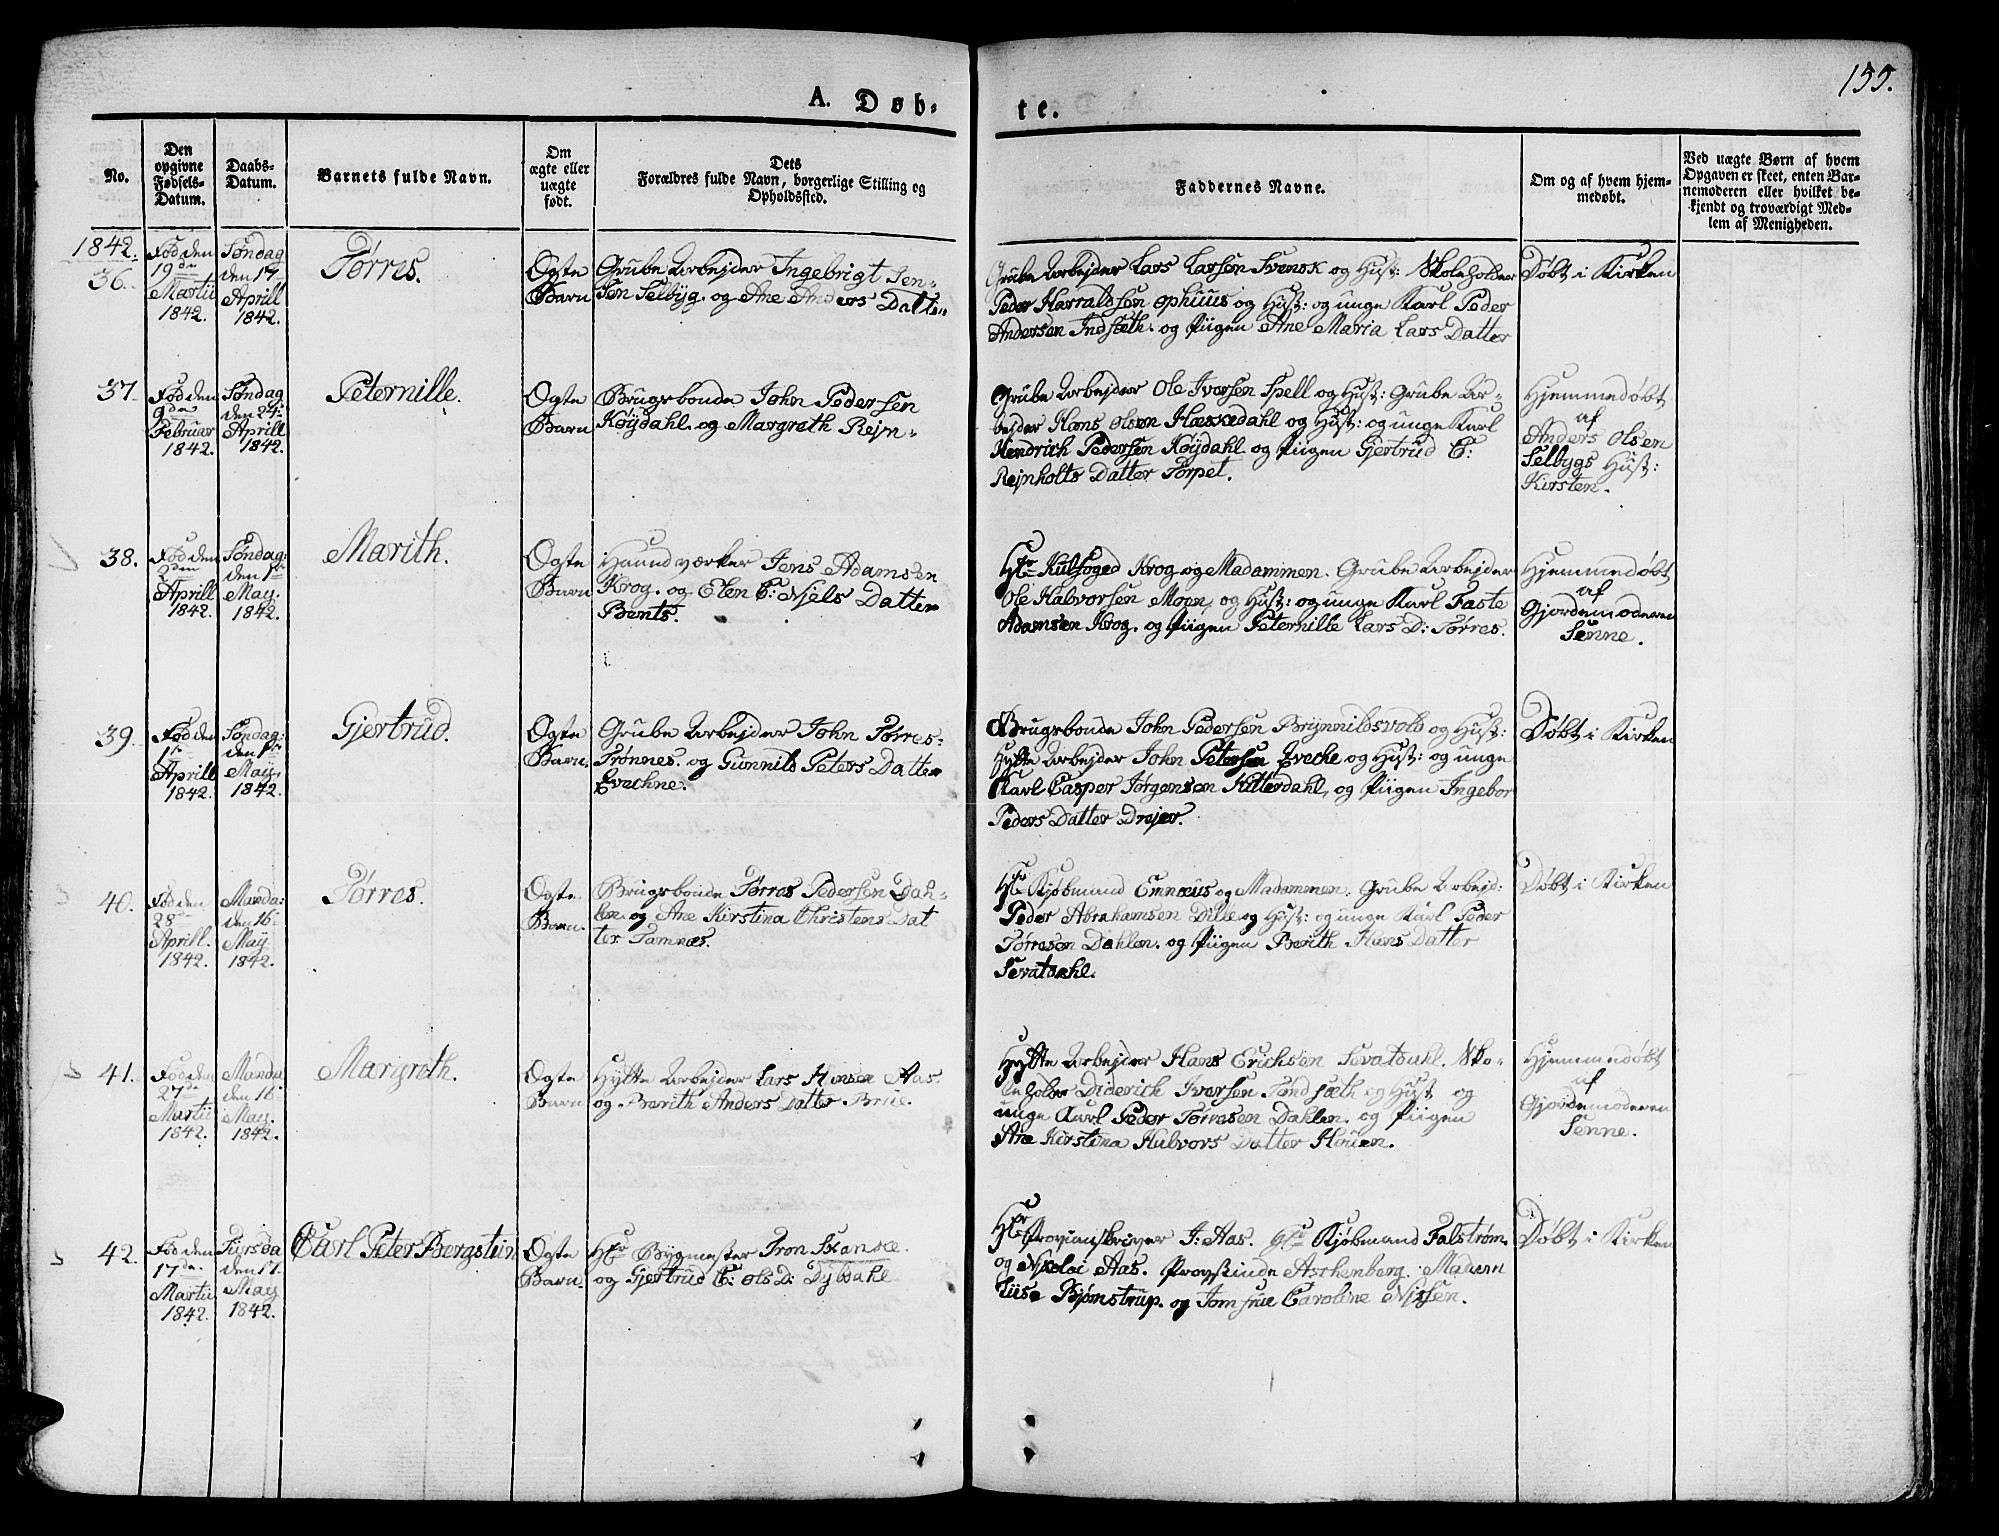 155.
A. Døb-
te.
No.
Den
opgivne
Fødsels-
Datum.
Daabs-
Datum.
Barnets fulde Navn.
Om
ægte eller
uægte
født.
Dets
Forældres fulde Navn, borgerlige Stilling og
Opholdssted.
Faddernes Navne.
Om og af hvem hjem-
medøbt.
Ved uægte Børn af hvem
Opgaven er skeet, enten Bar-
nemoderen eller hvilket be-
kjendt og troværdigt Med-
lem af Menigheden.
1842.
36.
Fød den
19de
Martii
1842.
Søndag
den 17
Aprill
1842.
Tørres.
Ægte
Barn
Grube Arbejder Ingebrigt Jen-
sen Selbyg. og Ane Anders Datter
Grube Arbejder Lars Larsen Svensk og Hust: Skoleholder
Peder Harraldsen Ophuus og Hust: og unge Karl Peder
Andersen Indsæth. og Piigen Ane Maria Lars Datter
Døbt i Kirken
37
Fød den
9de
Februar
1842.
Søndag
den 24
Aprill
1842.
Peternille.
Ægte
Barn
Brugsbonde John Pedersen
Køydahl. og Margreth Rejn-
Grube Arbejder Ole Iversen Spell og Hust: Grube Ar-
bejder Hans Olsen Flaskedahl og Hust: og unge Karl
Hendrich Pedersen Køydahl og Piigen Gjertrud C:
Rejnholts Datter Torpet.
Hjemmedøbt
af
Anders Olsen
Selbygs Hust:
Kirsten.
38.
Fød den
2den
Aprill
1842.
Søndag:
den 1ste
May.
1842.
Marith.
Ægte
Barn
Haandværker Jens Adamsen
Krog. og Elen C: Njels Datter
Bents.
Hr Kulfoged Krog og Madammen. Grube Arbejder
Ole Halvorsen Moen, og Hust: og unge Karl Faste
Adamsen Krog. og Piigen Peternille Lars D: Tørres.
Hjemmedøbt
af
Gjordemoderen
Senne.
39.
Fød den
1ste
Aprill
1842.
Søndag:
den 1ste
May.
1842.
Gjertrud.
Ægte
Barn.
Grube Arbejder John Tørres-
Trønnes. og Gunnild Peters Datter
Evechne.
Brugsbonde John Pedersen Brynnildsvold og Hust:
Hytte Arbejder John Petersen Eveche og Hust: og unge
Karl Casper Jørgensen Kitterdahl, og Piigen Ingebor
Peders Datter Drejer.
Døbt i Kirken
40.
Fød den
28de
Aprill.
1842.
Manda:
den 16
May
1842.
Tørres.
Ægte
Barn.
Brugsbonde Tørres Pedersen Dah-
len. og Ane Kirstina Christens Dat
ter Tamnes.
Hr Kjøbmand Emnæus og Madammen. Grube Arbejd:
Peder Abrahamsen Dille og Hust: og unge Karl Peder
Tørresen Dahlen. og Piigen Berith Hans Datter
Sevatdahl.
Døbt i Kirken
41.
Fød den
27de
Martii
1842.
Manda
den 16
May.
1842.
Margreth.
Ægte
Barn
Hytte Arbejder Lars Hansen Aas.
og Berith Anders Datter Brue.
Hytte Arbejder Hans Erichsen Sevatdahl. Sko-
leholder Diderich Iversen Tøndsæth og Hust og
unge Karl Peder Tørresen Dahlen. og Piigen
Ane Kirstina Halvors Datter Houen.
Hjemmedøbt
af
Gjordemoderen
Senne.
42.
Fød den
17de
Martii
1842.
Tiirsda
den 17
May
1842.
Carl Peter Bergstein
Ægte
Barn.
Hr Bygmester Tron Skanke.
og Gjertrud C: Ols D: Dybdahl.
Hr Provianskriver J: Aas. Hr Kjøbmand Falstrøm.
og Nikolai Aas. Provstinde Aschenberg. Madam
Liise Bjørnstrup. og Jomfrue Caroline Nissen.
Døbt i Kirken